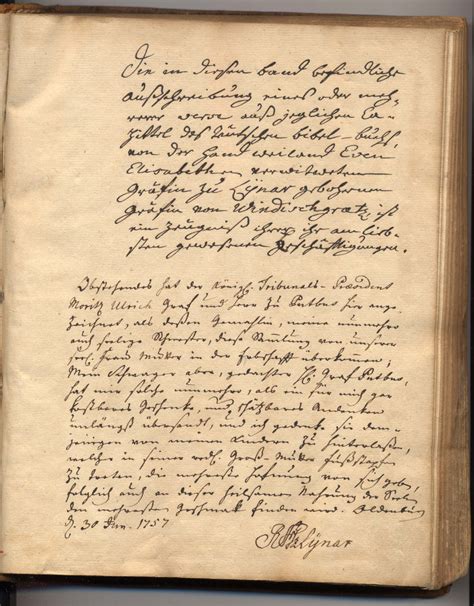 Die in diesen band befindliche
außschreibung eines oder meh-
rerer verse auß jeglichen Ca-
pittel des deutschen bibel-buchs,
von der hand weiland Even
Elisabethen verwitweten
Gräfin zu Lÿnar gebohrenen
Gräfin von Windischgratz, ist
ein zeugniß ihrer ihr am lieb-
sten gewesenen beschäfftigungen.
Obstehendes hat der Königl. Tribunals-Præsident
Moritz Ulrich Graf und Herr zu Putbus hier ange-
zeichnet, als deßen Gemahlin, meine nunmehro
auch seelige Schwester, diese Samlung von unserer
seel. Frau Mutter in der Erbschafft überkommen;
Mein Schwager aber, gedachter H. Graf Putbus,
hat mir solche nunmehro, als ein für mich gar
kostbares Geschenke, und schätzbares Andenken
umlängst übersandt, und ich gedenke sie dem-
jenigen von meinen Kindern zu hinterlaßen,
welcher in seiner seel. Groß-Mutter Fußstapfen
zu treten, die mehreste Hofnung von sich geben,
folglich auch an dieser heilsamen Nahrung der Seelen
den mehresten Geschmak finden wird. Oldenburg
d. 30 Jun. 1757.
Lÿnar